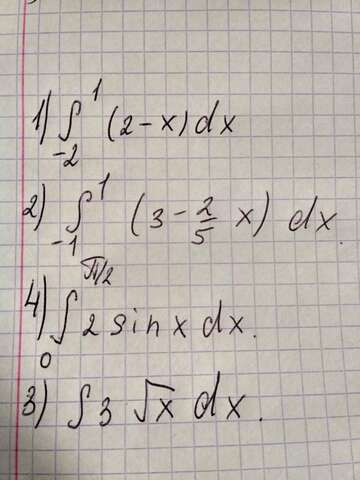 1) ∫₋₂¹ (2-x) dx
2) ∫₋₁¹ (3 - 2/5 x) dx.
4) ∫₀^(π/2) 2 sin x dx.
3) ∫ 3 √x dx.